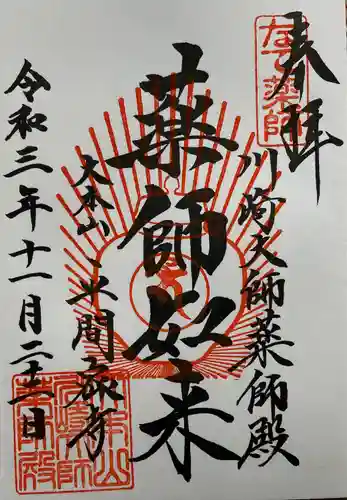 奉拝
なで薬師
川崎大師薬師殿
薬師如来
大本山
平間寺
令和三年十一月二十二日